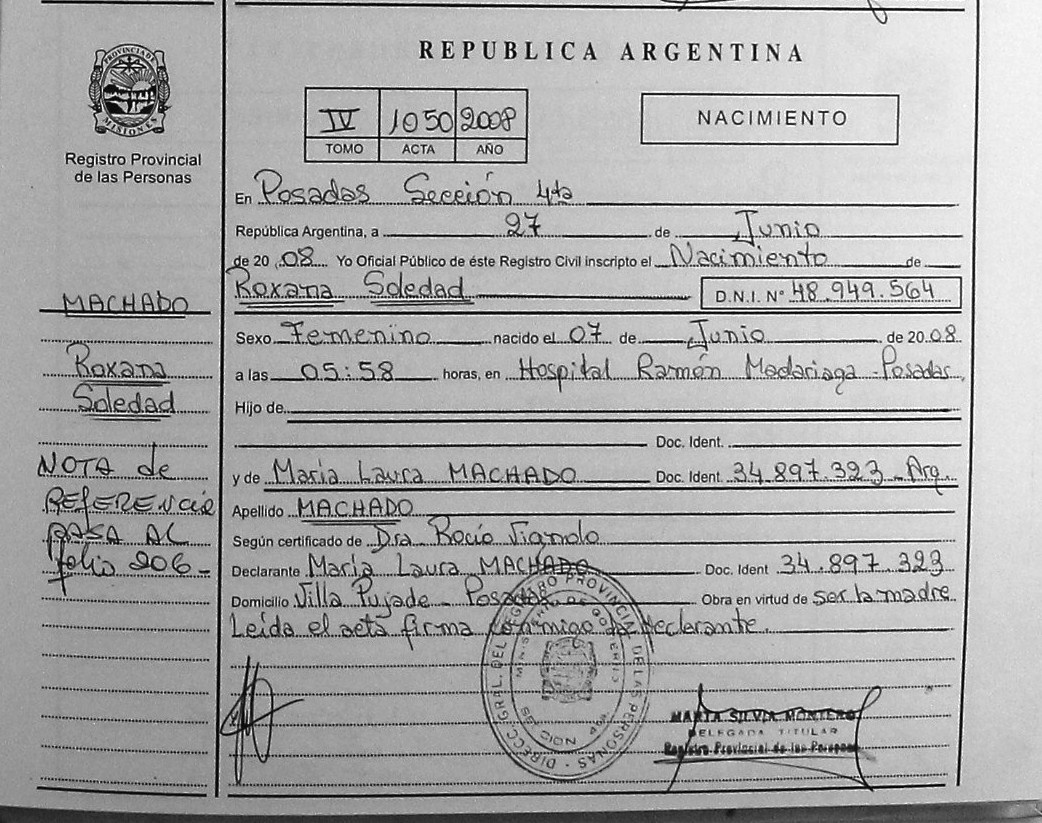 PROVINCIA DE
MISIONES
Registro Provincial
de las Personas
MACHADO
Roxana
Soledad
NOTA de
REFERENCIA
PASA AL
folio 206-
REPUBLICA ARGENTINA
IV 1050 2008
TOMO ACTA AÑO
NACIMIENTO
En Posadas Sección 4ta
República Argentina, a 27 de Junio
de 20 08 Yo Oficial Público de éste Registro Civil inscripto el Nacimiento de
Roxana Soledad D.N.I. Nº 48.949.564
Sexo Femenino nacido el 07 de Junio de 20 08
a las 05:58 horas, en Hospital Ramón Madariaga - Posadas
Hijo de
Doc. Ident.
y de Maria Laura MACHADO Doc. Ident 34.897.323 Arg.
Apellido MACHADO
Según certificado de Dra Rocío Vignolo
Declarante Maria Laura MACHADO Doc. Ident 34.897.323
Domicilio Villa Pujade - Posadas Obra en virtud de ser la madre
Leída el acta firma conmigo la declarante.
DIRECC. GRAL. DEL REGISTRO PROVINCIAL DE LAS PERSONAS
MINISTERIO DE GOBIERNO
MARTA SILVIA MONTERO
DELEGADA TITULAR
Registro Provincial de las Personas